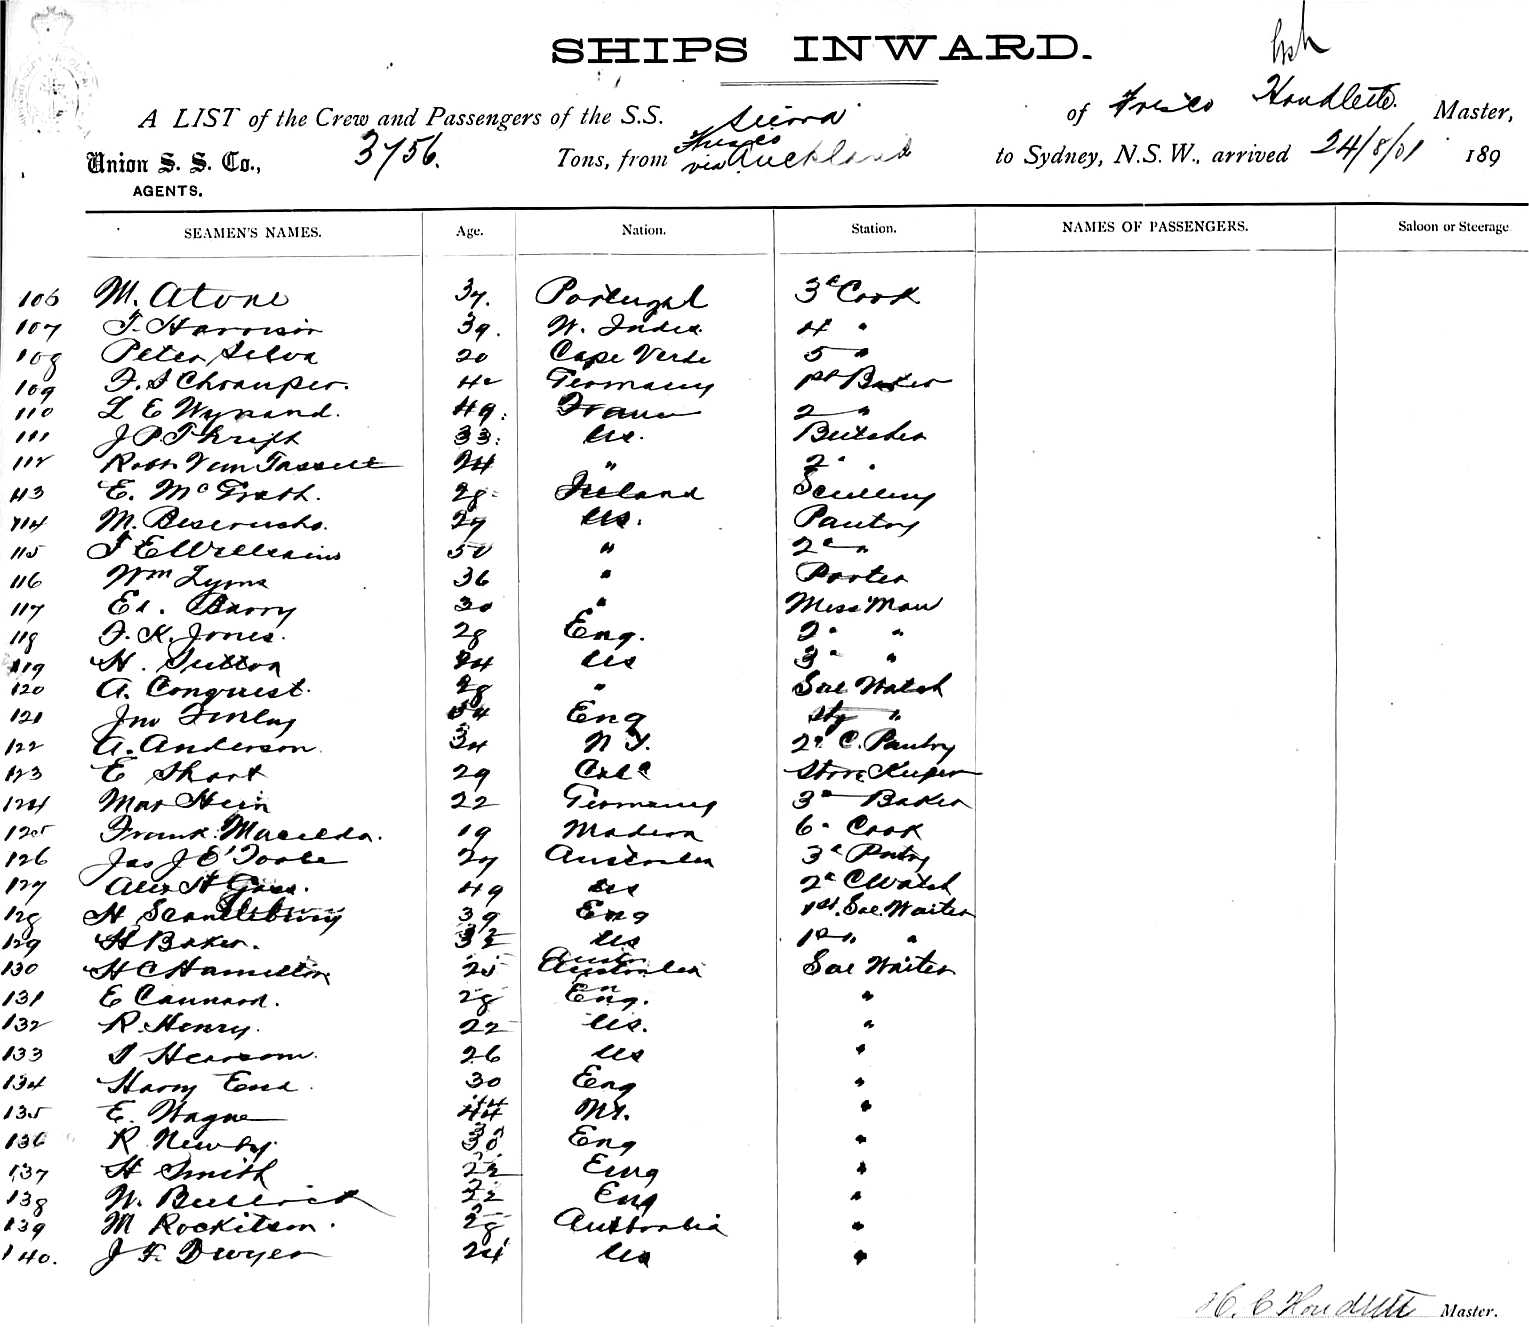 SHIPS INWARD.
A LIST of the Crew and Passengers of the S.S. Sierra of Frisco Houdlette. Master,
Union S. S. Co., 3756. Tons, from Frisco via Auckland to Sydney, N.S.W., arrived 24/8/01 189
AGENTS.
SEAMEN'S NAMES. Age. Nation. Station. NAMES OF PASSENGERS. Saloon or Steerage
106 M. Atone 37. Portugal 3d Cook
107 T. Harrison 39. W. Indies 4 "
108 Peter Silva 20 Cape Verde 5 "
109 Germany 1st Baker
110 L E Wynand. 49. France 2 "
111 J P Thrift 33. US. Butcher
112 Robt Van Tassell 24 " 2d "
113 E. McGrath. 28 Ireland Scullery
114 M. 27 US. Pantry
115 J E Williams 50 " 2d "
116 Wm Lyons 36 " Porter
117 Ed. Barry 30 " Mess Man
118 F. K. Jones. 28 Eng. 2d "
119 H. Sutton 24 US 3d "
120 A. Conquest. 28 " Sal Watch
121 Jno Finlay 54 Eng Stg "
122 A. Anderson. 34 N Y. 2d C. Pantry
123 E Short 29 Cala Store Keeper
124 Max Hein 22 Germany 3d Baker
125 Frank 19 Madera 6d Cook
126 Jas J O'Toole 27 Australia 3d Pntry
127 Alex H 49 US 2d C Watch
128 H Scantlebury 39 Eng 1st. Sal. Waiter
129 H Baker. 32 US 1st " "
130 H C Hamilton 25 Australia Sal Waiter
131 E Cannard. 28 Eng. "
132 R. Henry. 22 US. "
133 S Hearsom. 26 US "
134 Harry 30 Eng "
135 E. Wagne 44 "
136 R Newby. Eng "
137 H Smith 22 Eng "
138 W. Bullock 22 Eng "
139 M Rockitson. 28 Australia "
140. J F. Dwyer 24 US "
H. C Houdlette Master.